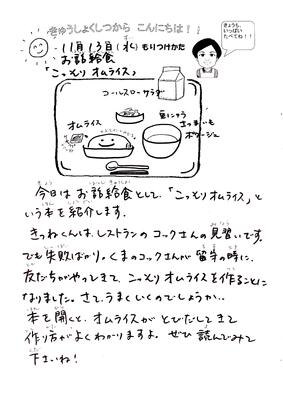 きゅうしょくしつから こんにちは！！
きょうも、
いっぱい
たべてね！！
11月13日(水) もりつけかた
お話給食
「こっそりオムライス」
コールスローサラダ
オムライス
さつまいも
ポタージュ
今日はお話給食として、「こっそりオムライス」と
いう本を紹介します。
きつねくんは、レストランのコックさんの見習いです。
でも失敗ばかり。くまのコックさんが留守の時に、
友だちがやってきて、こっそりオムライスを作ることに
なりました。さて、うまくいくのでしょうか…
本を開くと、オムライスがとびだしてきて
作り方がよくわかりますよ。ぜひ読んでみて
下さいね！